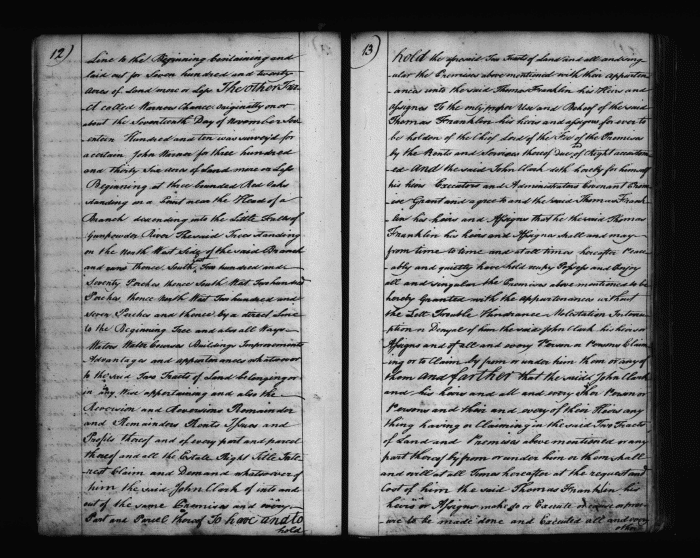 12)
Line to the Beginning Containing and
laid out for Seven hundred and twenty
Acres of Land more or Less The other Tra
ct called Warners Chance Originally on or
about the Seventeenth Day of November Sev
enteen Hundred and ten was survey'd for
a certain John Warner for three hundred
and Thirty Six acres of Land more or Less
Beginning at three bounded Red Oaks
standing in a Line near the Head of a
Branch descending into the Little Falls of
Gunpowder River The said Trees standing
on the North West Side of the said Branch
and runs thence South East Two hundred and
Seventy Perches thence South West Two hundred
Perches thence North West Two hundred and
Seven Perches and thence by a street Line
to the Beginning Tree and also all Ways
Waters Water Courses Buildings Improvements
Advantages and appurtenances whatsoever
to the said Two Tracts of Land belonging or
in any Wise appertaining and also the
Reversion and Reversions Remainder
and Remainders Rents Issues and
Profits thereof and of every part and parcel
thereof and all the Estate Right Title Inte
rest Claim and Demand whatsoever of
him the said John Clark of into and
out of the same Premises and every
Part and Parcel thereof To have and to
hold
13)
hold the aforesaid Two Tracts of Land and all and sing
ular the Premises above mentioned with their appurten
ances unto the said Thomas Franklin his Heirs and
Assigns To the only proper Use and Behoof of the said
Thomas Franklin his heirs and assigns for ever to
be holden of the Chief Lord of the Fee of the Premises
by the Rents and Services thereof due of Right accustom
ed And the said John Clark doth hereby for himself
his heirs Executors and Administrators Covenant Prom
ise Grant and agree to and the said Thomas Frank
lin his heirs and Assigns that he the said Thomas
Franklin his heirs and Assigns shall and may
from time to time and at all times hereafter Peace
ably and quietly have hold occupy Possess and Enjoy
all and singular the Premises above mentioned to be
hereby Granted with the appurtenances without
the Lett Trouble Hindrance Molestation Interru
ption or Denyal of him the said John Clark his heirs or
Assigns and of all and every Person or Persons Claim
ing or to Claim by from or under him them or any of
them and farther that the said John Clark
and his heirs and all and every other Person or
Persons and their and every of their Heirs any
thing having or Claiming in the said Two Tracts
of Land and Premises above mentioned or any
part thereof by from or under him or them shall
and will at all Times hereafter at the request and
Cost of him the said Thomas Franklin his
heirs or Assigns make do or Execute or cause or proc
ure to be made done and Executed all and every